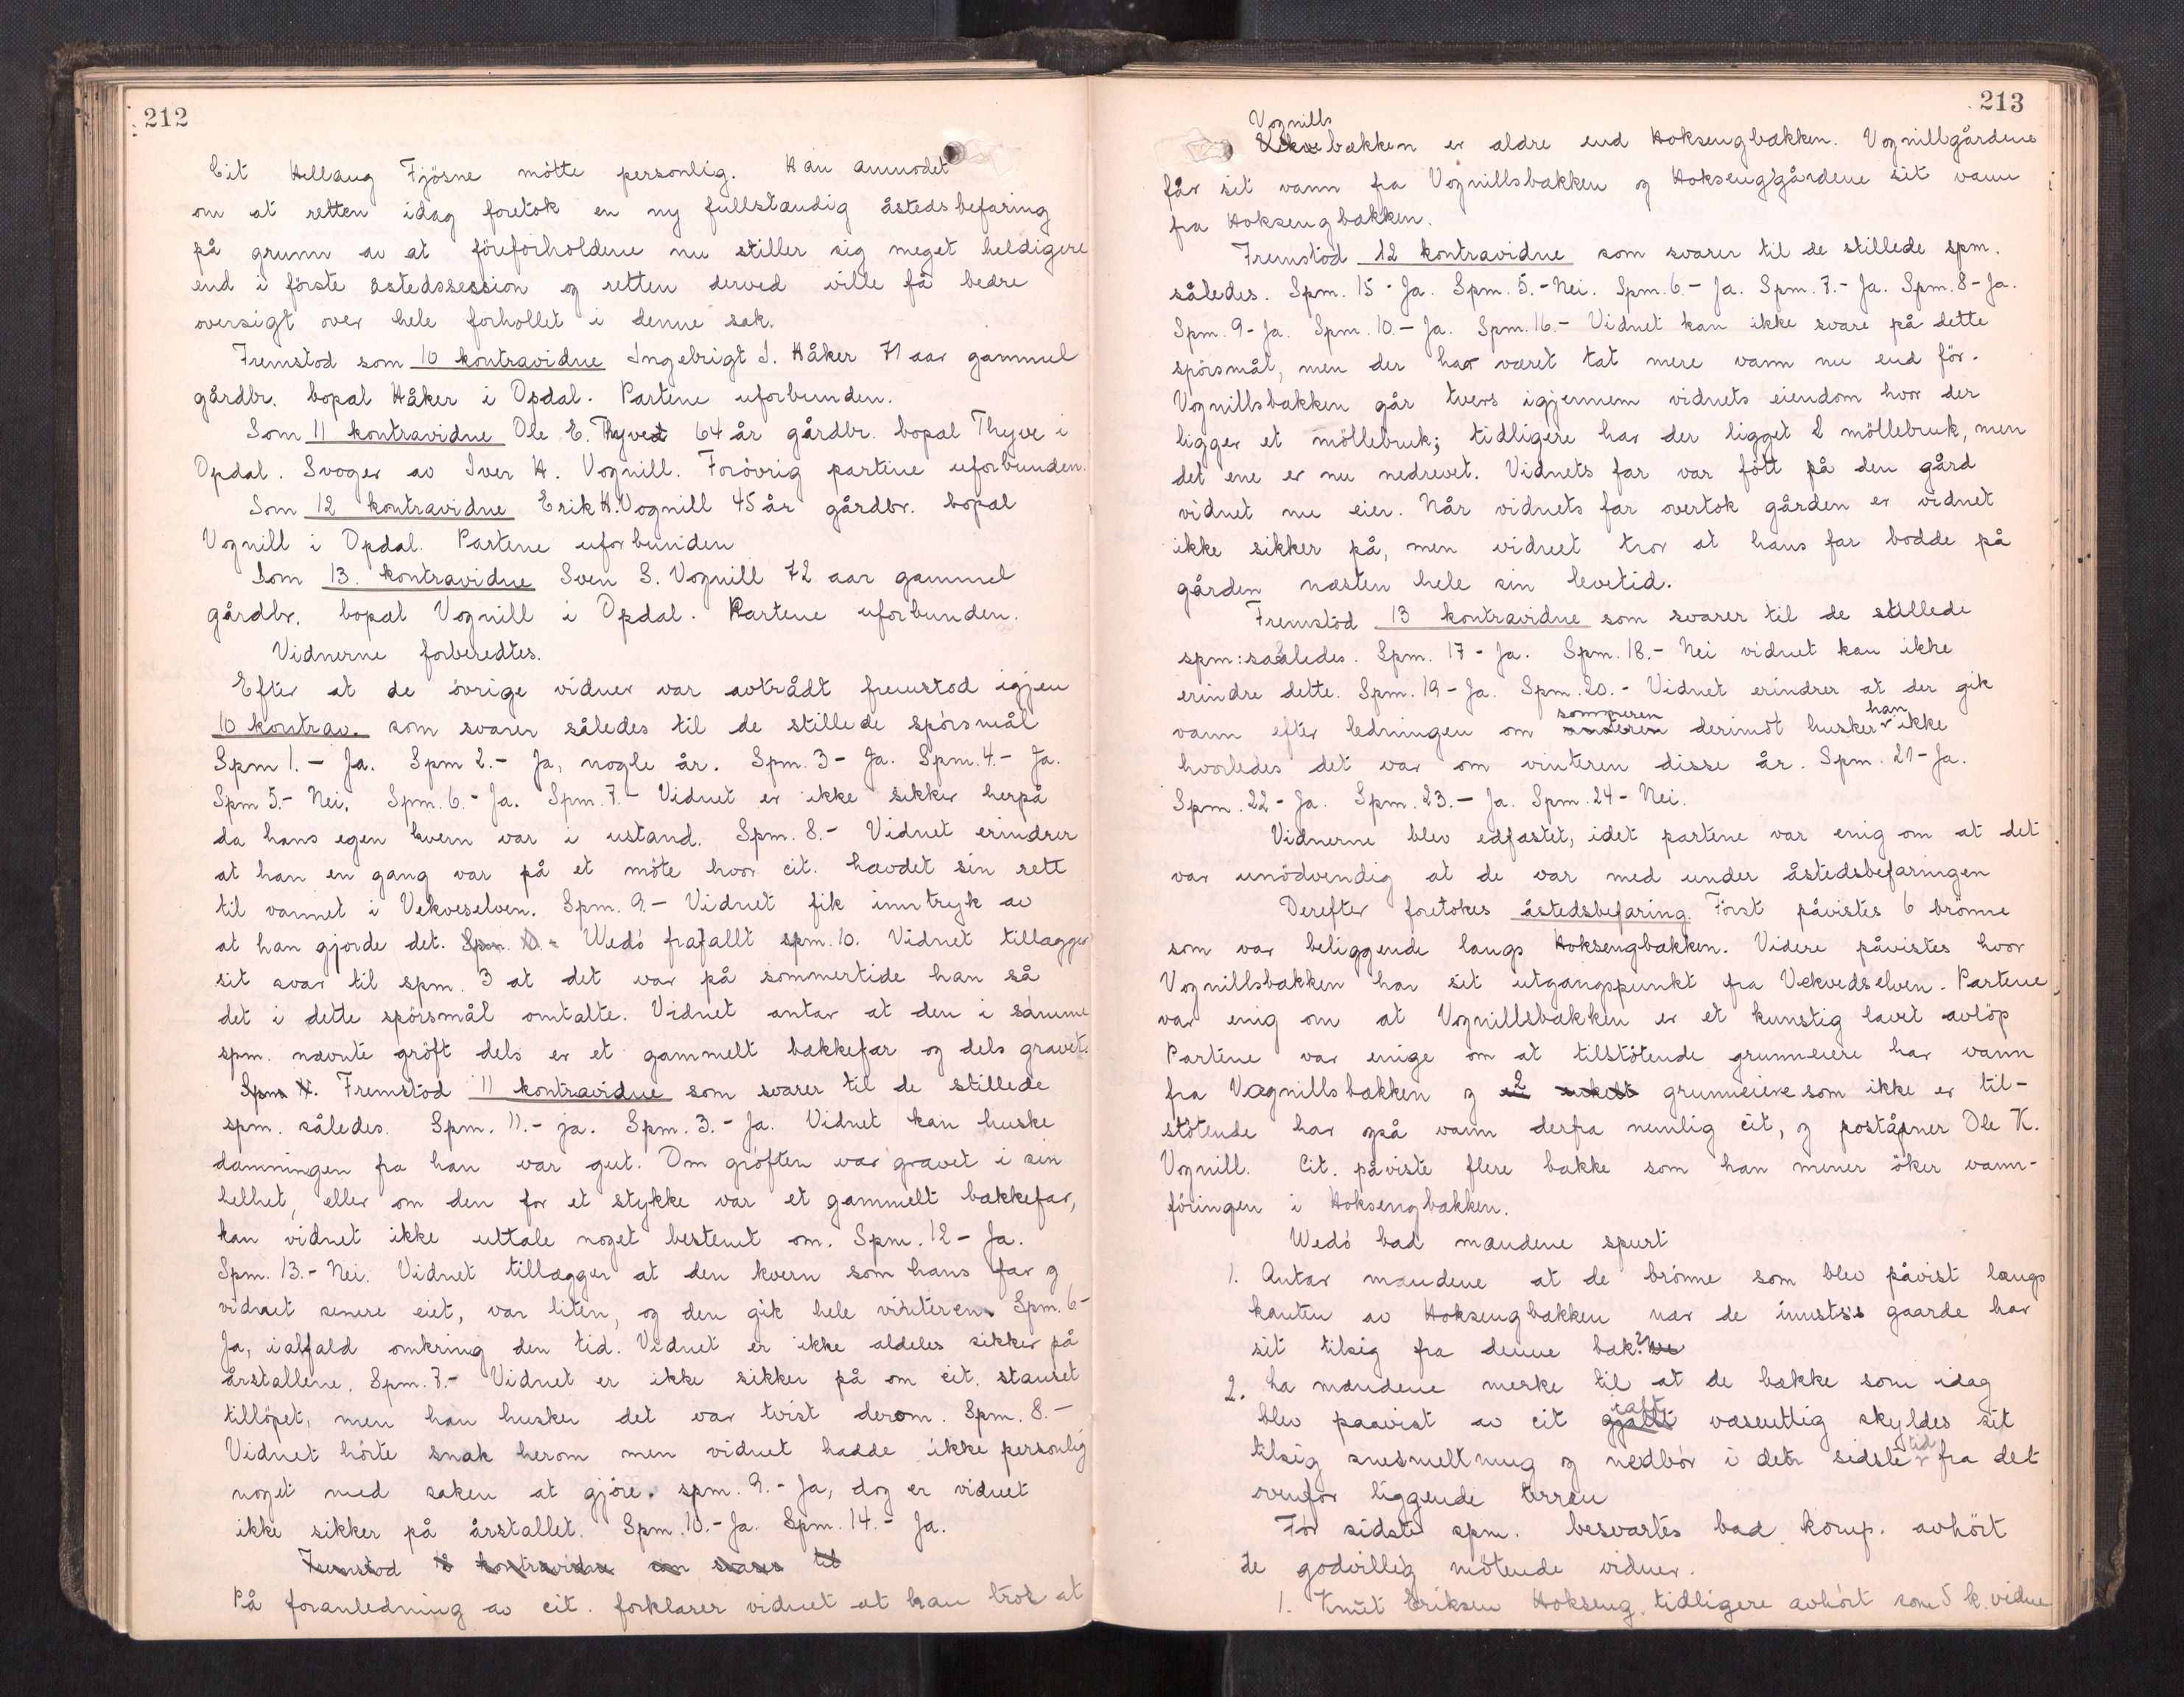 212
Cit Hellaug Fjösne mötte personlig. Han anmodet
om at retten idag foretok en ny fullstændig åstedsbefaring
på grunn av at föreforholdene nu stiller sig meget heldigere
end i förste åstedssession og retten derved ville få bedre
oversigt over hele forhollet i denne sak.
Fremstod som 10 kontravidne Ingebrigt I. Håker 71 aar gammel
gårdbr. bopal Håker i Opdal. Partene uforbunden.
Som 11 kontravidne Ole E. Thyve 64 år gårdbr. bopal Thyve i
Opdal. Svoger av Iver H. Vognill. Forövrig partene uforbunden.
Som 12 kontravidne Erik H. Vognill 45 år gårdbr. bopal
Vognill i Opdal. Partene uforbunden
Som 13. kontravidne Sven S. Vognill 72 aar gammel
gårdbr. bopal Vognill i Opdal. Partene uforbunden.
Vidnerne forberedtes.
Efter at de övrige vidner var avtrådt fremstod igjen
10 kontrav. som svarer således til de stillede spörsmål
Spm 1.- Ja. Spm 2.- Ja, nogle år. Spm. 3- Ja. Spm. 4.- Ja.
Spm 5.- Nei. Spm. 6.- Ja. Spm. 7.- Vidnet er ikke sikker herpå
da hans egen kvern var i ustand. Spm. 8.- Vidnet erindrer
at han en gang var på et möte hvor cit. hævdet sin rett
til vannet i Vekveselven. Spm. 9.- Vidnet fik inntryk av
at han gjorde det. Spm. 10.- Wedö frafallt spm. 10. Vidnet tillægger
sit svar til spm. 3 at det var på sommertide han så
det i dette spörsmål omtalte. Vidnet antar at den i samme
spm. nævnte gröft dels er et gammelt bækkefar og dels gravet.
Spm. Fremstod 11 kontravidne som svarer til de stillede
spm. således. Spm. 11.- ja. Spm. 3.- Ja. Vidnet kan huske
dæmningen fra han var gut. Om gröften var gravet i sin
helhet, eller om den for et stykke var et gammelt bækkefar,
kan vidnet ikke uttale noget bestemt om. Spm. 12- Ja.
Spm. 13.- Nei. Vidnet tillægger at den kvern som hans far og
vidnet senere eiet, var liten, og den gik hele vinteren. Spm. 6-
Ja, ialfald omkring den tid. Vidnet er ikke aldeles sikker på
årstallene. Spm. 7.- Vidnet er ikke sikker på om cit. stanset
tillöpet, men han husker det var tvist derom. Spm. 8.-
Vidnet hörte snak herom men vidnet hadde ikke personlig
noget med saken at gjöre. spm. 9.- Ja, dog er vidnet
ikke sikker på årstallet. Spm. 10.- Ja. Spm. 14.- Ja.
Fremstod 12 kontravidne som svarer til
På foranledning av cit. forklarer vidnet at han trok at
213
Vognills
bækken er ældre end Hoksengbækken. Vognillgårdene
får sit vann fra Vognillsbækken og Hoksenggårdene sit vann
fra Hoksengbækken.
Fremstod 12 kontravidne som svarer til de stillede spm.
således. Spm. 15 - Ja. Spm. 5.- Nei. Spm. 6.- Ja. Spm. 7.- Ja. Spm. 8- Ja.
Spm. 9- Ja. Spm. 10.- Ja. Spm. 16.- Vidnet kan ikke svare på dette
spörsmål, men der har været tat mere vann nu end för.
Vognillsbækken går tvers igjennem vidnets eiendom hvor der
ligger et möllebruk; tidligere har der ligget 2 möllebruk, men
det ene er nu nedrevet. Vidnets far var fött på den gård
vidnet nu eier. Når vidnets far overtok gården er vidnet
ikke sikker på, men vidnet tror at hans far bodde på
gården næsten hele sin levetid.
Fremstod 13 kontravidne som svarer til de stillede
spm: saaledes. Spm. 17 - Ja. Spm. 18.- Nei vidnet kan ikke
erindre dette. Spm. 19 - Ja. Spm. 20.- Vidnet erindrer at der gik
vann efter ledningen om sommeren derimot husker han ikke
hvorledes det var om vinteren disse år. Spm. 21- Ja.
Spm. 22 - Ja. Spm. 23.- Ja. Spm. 24 - Nei.
Vidnerne blev edfæstet, idet partene var enig om at det
var unödvendig at de var med under åstedsbefaringen
Derefter foretokes åstedsbefaring. Först påvistes 6 brönne
som var beliggende langs Hoksengbækken. Videre påvistes hvor
Vognillsbækken har sit utgangspunkt fra Vekvedselven. Partene
var enig om at Vognillsbækken er et kunstig lavet avlöp
Partene var enige om at tilstötende grunneiere har vann
fra Vognillsbækken og 2 grunneiere som ikke er til-
stötende har også vann derfra nemlig cit, og poståpner Ole K.
Vognill. Cit. påviste flere bække som han mener öker vann-
föringen i Hoksengbækken.
Wedö bad mændene spurt
1. Antar mændene at de brönne som blev påvist langs
kanten av Hoksengbækken nær de innstev. gaarde har
sit tilsig fra denne bæk?
2. La mændene merke til at de bække som idag
blev paavist av cit ialt væsentlig skyldes sit
tilsig snesmeltning og nedbör i den sidste tid fra det
ovenfor liggende terræn
För sidste spm. besvartes bad komp. avhört
de godvillig mötende vidner.
1. Knut Eriksen Hokseng. tidligere avhört som 5 k. vidne